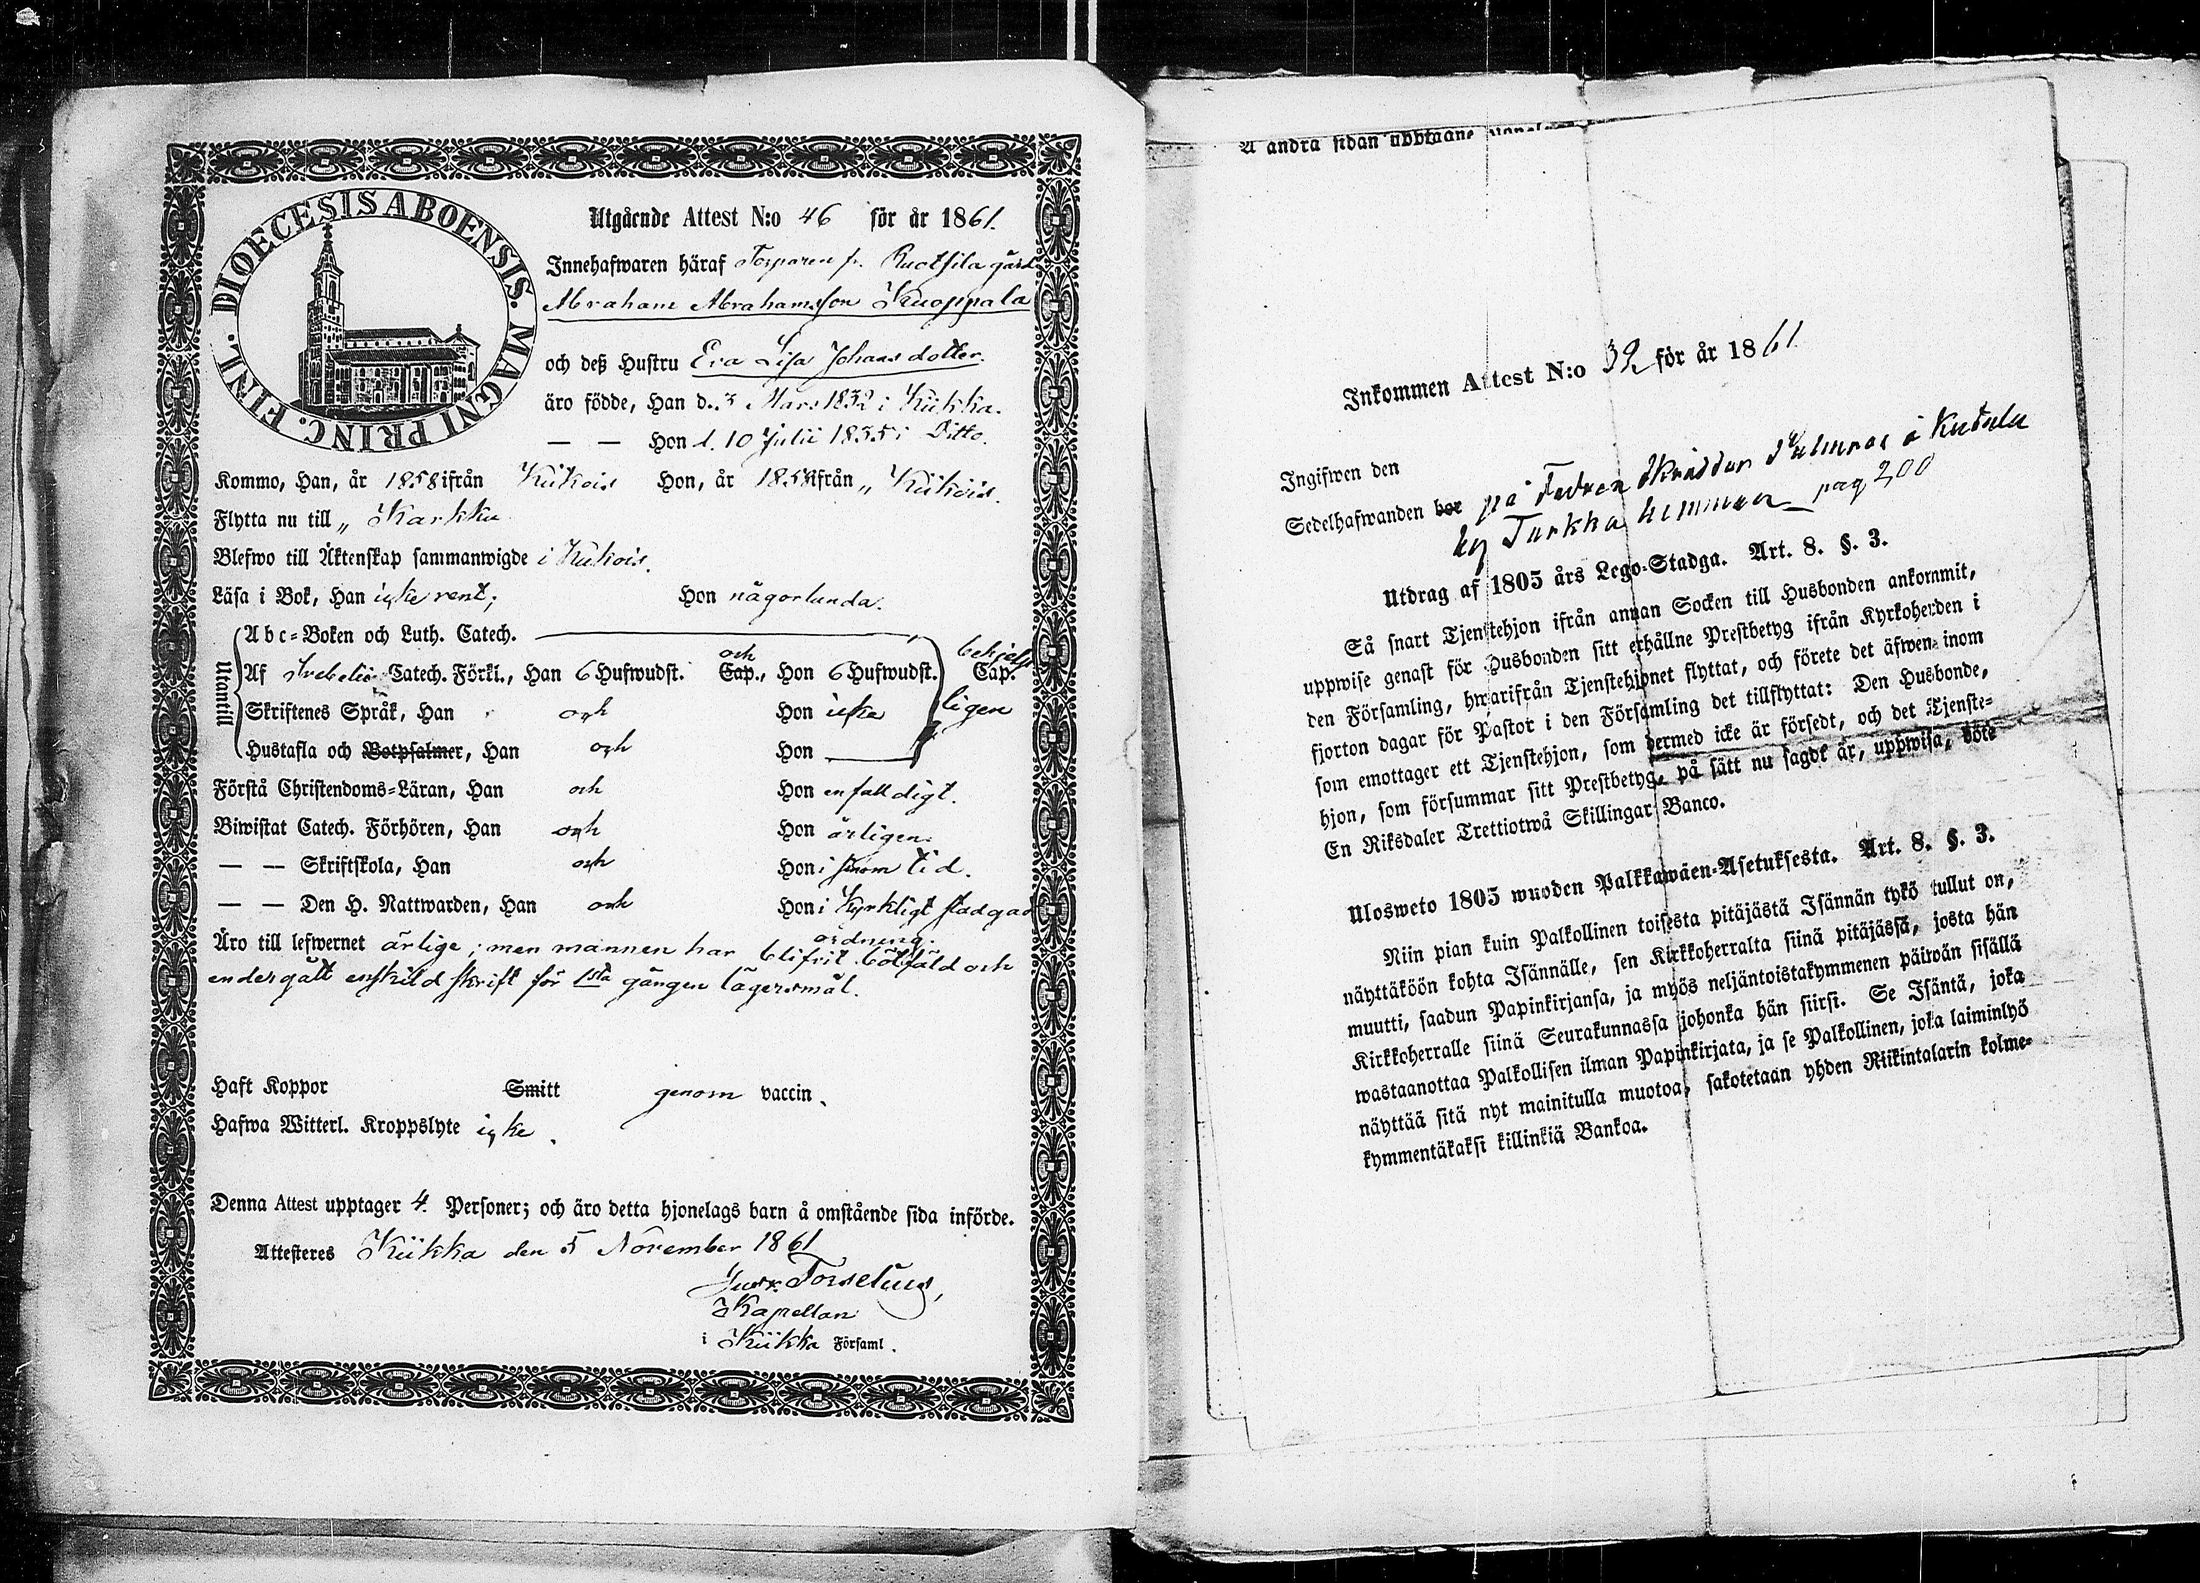 DIOECESIS ABOENSIS. MAGNI PRINC. FINL.
Utgående Attest N:o 46 för år 1861.
Innehafwaren häraf Torparen fr. Ruotsila gård
Abraham Abrahamsson Kuoppala
och deß Hustru Eva Lisa Johansdotter.
äro födde, Han d. 3 Mars 1832 i Kiikka.
— — Hon d. 10 Julii 1835 i Ditto.
Kommo, Han, år 1858 ifrån Kiikois Hon, år 1858 ifrån „ Kiikois.
Flytta nu till „ Karkku
Blefwo till Äktenskap sammanwigde i Kiikois.
Läsa i Bok, Han icke rent; Hon någorlunda.
Utantill
Abc-Boken och Luth. Catech.
Af Svebelii Catech. Förkl., Han 6 Hufwudst. och Cap., Hon 6 Hufwudst. Cap. behjelpligen
Skriftenes Språk, Han och Hon icke
Hustafla och Botpsalmer, Han och Hon
Förstå Christendoms-Läran, Han och Hon enfalldigt.
Biwistat Catech. Förhören, Han och Hon årligen.
— — Skriftskola, Han och Hon i sinom tid.
— — Den H. Nattwarden, Han och Hon i Kyrkligt stadgad
ordning.
Äro till lefwernet ärlige; men mannen har blifvit bötfäld och
undergått enskild skrift för 1sta gången lägersmål.
Haft Koppor Smitt genom vaccin.
Hafwa Witterl. Kroppslyte icke.
Denna Attest upptager 4. Personer; och äro detta hjonelags barn å omstående sida införde.
Attesteres Kiikka den 5 November 1861
Torselius,
Kapellan
i Kiikka Församl.
Å andra sidan upptagne
Inkommen Attest N:o 32 för år 1861.
Ingifwen den
Sedelhafwanden bor på å Kutala
by Turkka hemman pag 200
Utdrag af 1805 års Lego-Stadga. Art. 8. §. 3.
Så snart Tjenstehjon ifrån annan Socken till Husbonden ankommit,
uppwise genast för Husbonden sitt erhållne Prestbetyg ifrån Kyrkoherden i
den Församling, hwarifrån Tjenstehjonet flyttat, och förete det äfwen inom
fjorton dagar för Pastor i den Församling det tillflyttat: Den Husbonde,
som emottager ett Tjenstehjon, som dermed icke är försedt, och det Tjenste-
hjon, som försummar sitt Prestbetyg, på sätt nu sagdt är, uppwisa, böte
En Riksdaler Trettiotwå Skillingar Banco.
Ulosweto 1805 wuoden Palkkawäen-Asetuksesta. Art. 8. §. 3.
Niin pian kuin Palkollinen toisesta pitäjästä Isännän tykö tullut on,
näyttäköön kohta Isännälle, sen Kirkkoherralta siinä pitäjässä, josta hän
muutti, saadun Papinkirjansa, ja myös neljäntoistakymmenen päiwän sisällä
Kirkkoherralle siinä Seurakunnassa johonka hän siirsi. Se Isäntä, joka
wastaanottaa Palkollisen ilman Papinkirjata, ja se Palkollinen, joka laiminlyö
näyttää sitä nyt mainitulla muotoa, sakotetaan yhden Riikintalarin kolme-
kymmentäkaksi killinkiä Bankoa.